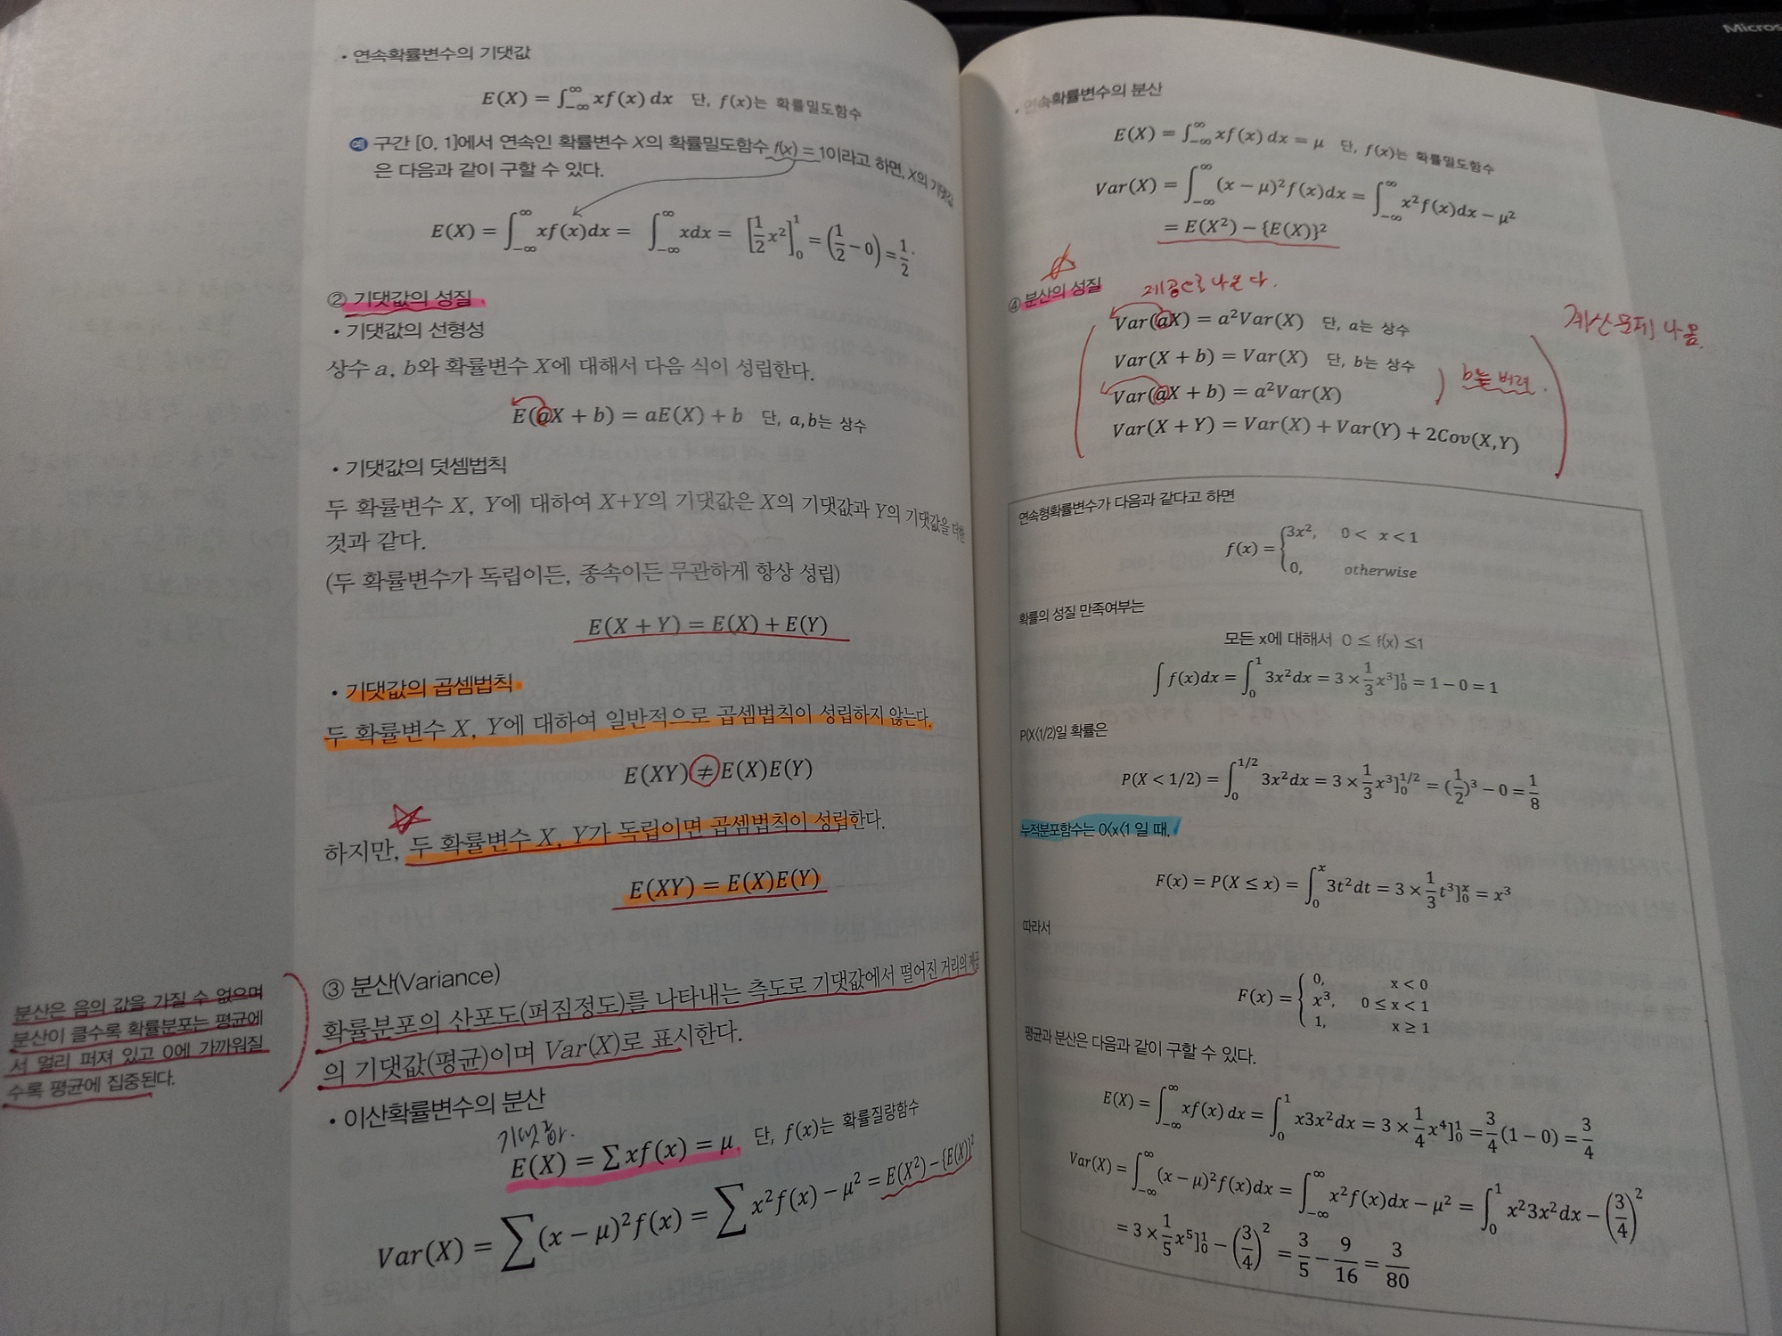 • 연속확률변수의 기댓값
E(X) = ∫_{-∞}^{∞} xf(x) dx 단, f(x)는 확률밀도함수
예 구간 [0, 1]에서 연속인 확률변수 X의 확률밀도함수 f(x) = 1이라고 하면, X의 기댓값
은 다음과 같이 구할 수 있다.
E(X) = ∫_{-∞}^{∞} xf(x)dx = ∫_{-∞}^{∞} xdx = [1/2 x²]_0^1 = (1/2 − 0) = 1/2.
② 기댓값의 성질
• 기댓값의 선형성
상수 a, b와 확률변수 X에 대해서 다음 식이 성립한다.
E(aX + b) = aE(X) + b 단, a,b는 상수
• 기댓값의 덧셈법칙
두 확률변수 X, Y에 대하여 X+Y의 기댓값은 X의 기댓값과 Y의 기댓값을 더한
것과 같다.
(두 확률변수가 독립이든, 종속이든 무관하게 항상 성립)
E(X + Y) = E(X) + E(Y)
• 기댓값의 곱셈법칙
두 확률변수 X, Y에 대하여 일반적으로 곱셈법칙이 성립하지 않는다.
E(XY) ≠ E(X)E(Y)
하지만, 두 확률변수 X, Y가 독립이면 곱셈법칙이 성립한다.
E(XY) = E(X)E(Y)
③ 분산(Variance)
확률분포의 산포도(퍼짐정도)를 나타내는 측도로 기댓값에서 떨어진 거리의 제곱
의 기댓값(평균)이며 Var(X)로 표시한다.
분산은 음의 값을 가질 수 없으며
분산이 클수록 확률분포는 평균에
서 멀리 퍼져 있고 0에 가까워질
수록 평균에 집중된다.
• 이산확률변수의 분산
기댓값.
E(X) = ∑xf(x) = μ 단, f(x)는 확률질량함수
Var(X) = ∑(x − μ)²f(x) = ∑x²f(x) − μ² = E(X²) − {E(X)}²
Micros
• 연속확률변수의 분산
E(X) = ∫_{-∞}^{∞} xf(x) dx = μ 단, f(x)는 확률밀도함수
Var(X) = ∫_{-∞}^{∞} (x − μ)²f(x)dx = ∫_{-∞}^{∞} x²f(x)dx − μ²
= E(X²) − {E(X)}²
④ 분산의 성질
제곱으로 나온다.
Var(aX) = a²Var(X) 단, a는 상수
계산문제 나옴.
Var(X + b) = Var(X) 단, b는 상수
b는 버려.
Var(aX + b) = a²Var(X)
Var(X + Y) = Var(X) + Var(Y) + 2Cov(X,Y)
연속형확률변수가 다음과 같다고 하면
f(x) = { 3x², 0 < x < 1
0, otherwise
확률의 성질 만족여부는
모든 x에 대해서 0 ≤ f(x) ≤1
∫ f(x)dx = ∫_0^1 3x²dx = 3 × 1/3 x³]_0^1 = 1 − 0 = 1
P(X<1/2)일 확률은
P(X < 1/2) = ∫_0^{1/2} 3x²dx = 3 × 1/3 x³]_0^{1/2} = (1/2)³ − 0 = 1/8
누적분포함수는 0<x<1 일 때,
F(x) = P(X ≤ x) = ∫_0^x 3t²dt = 3 × 1/3 t³]_0^x = x³
따라서
F(x) = { 0, x < 0
x³, 0 ≤ x < 1
1, x ≥ 1
평균과 분산은 다음과 같이 구할 수 있다.
E(X) = ∫_{-∞}^{∞} xf(x) dx = ∫_0^1 x3x²dx = 3 × 1/4 x⁴]_0^1 = 3/4 (1 − 0) = 3/4
Var(X) = ∫_{-∞}^{∞} (x − μ)²f(x)dx = ∫_{-∞}^{∞} x²f(x)dx − μ² = ∫_0^1 x²3x²dx − (3/4)²
= 3 × 1/5 x⁵]_0^1 − (3/4)² = 3/5 − 9/16 = 3/80